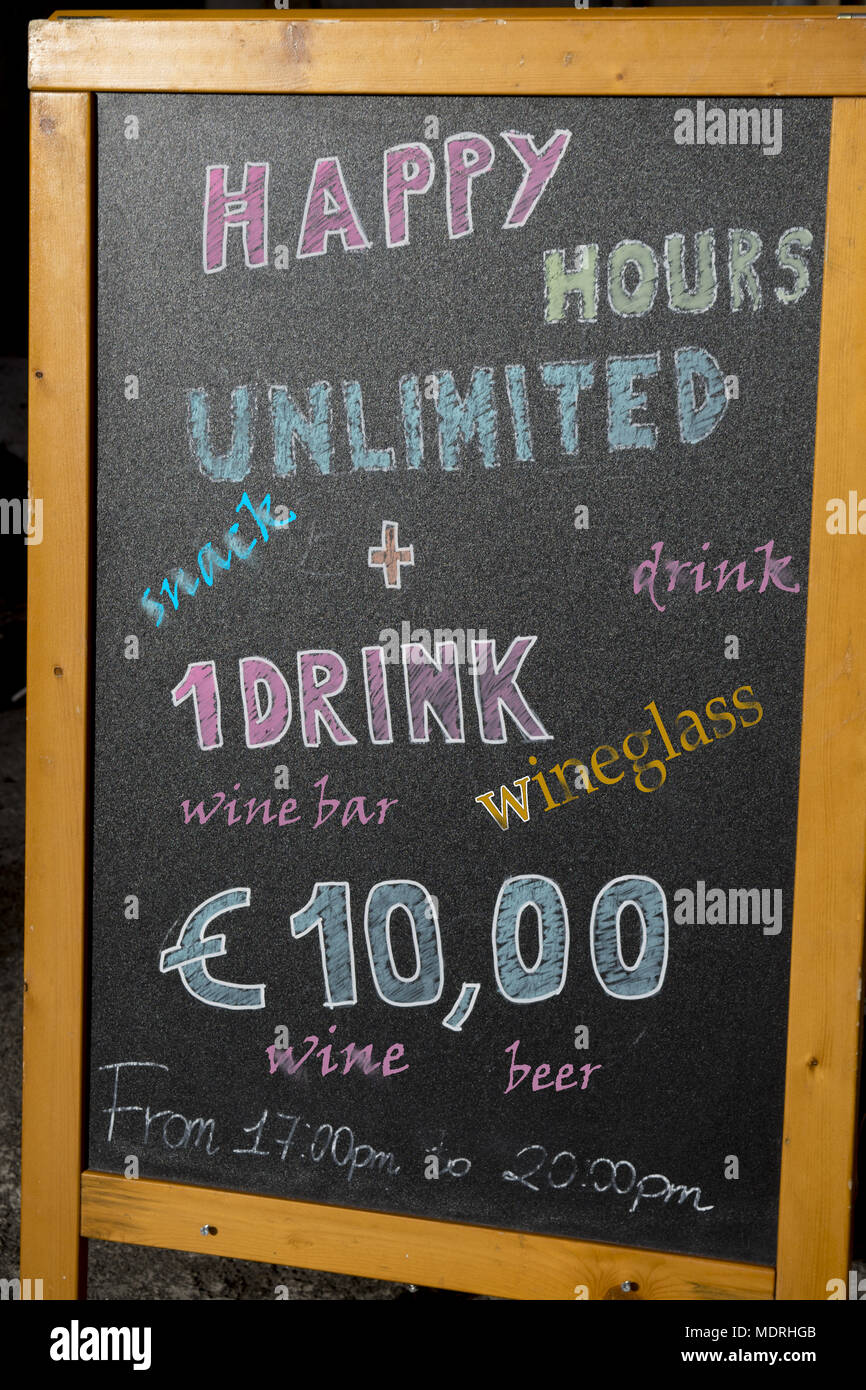 HAPPY
HOURS
UNLIMITED
snack
+
drink
1 DRINK
wineglass
wine bar
€ 10,00
wine
beer
From 17:00pm to 20:00pm
alamy stock photo
MDRHGB
www.alamy.com